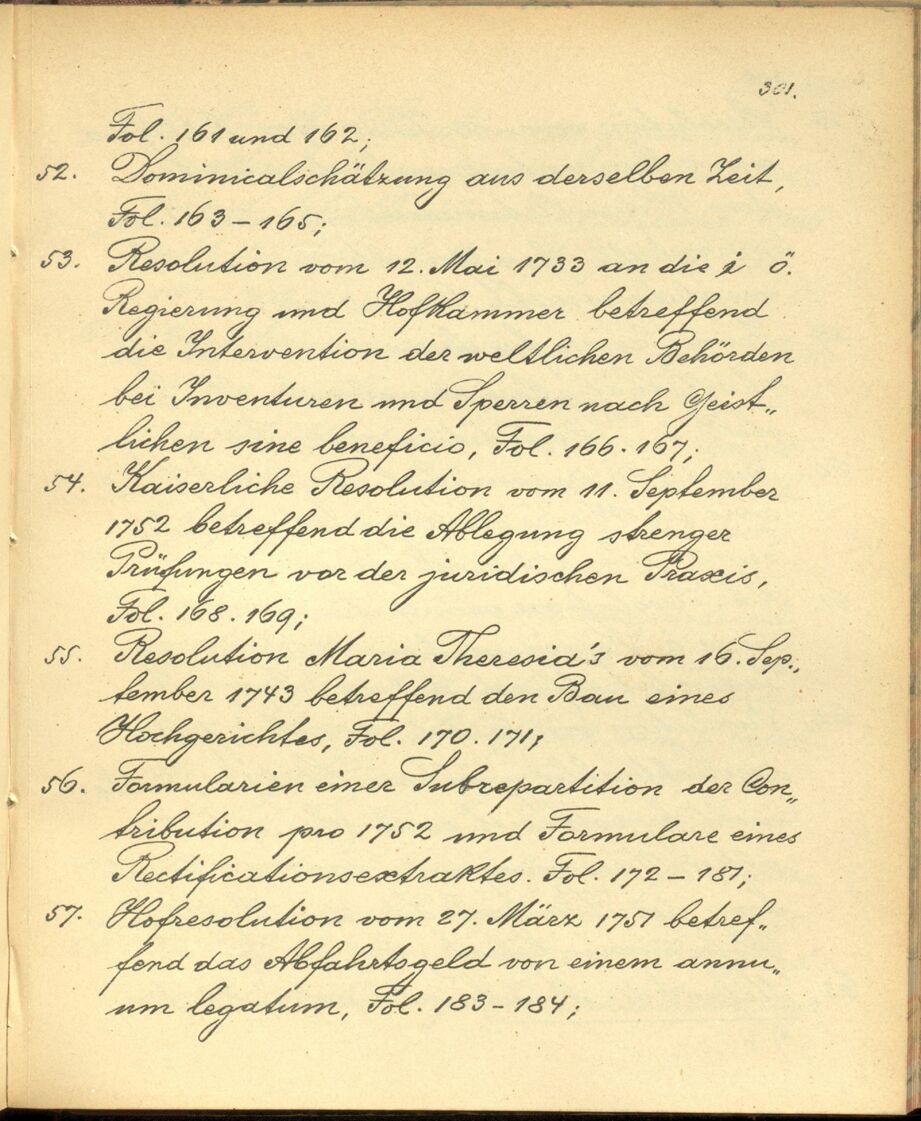 301.
Fol. 161 und 162;
52. Dominicalschätzung aus derselben Zeit,
Fol. 163 – 165;
53. Resolution vom 12. Mai 1733 an die i ö.
Regierung und Hofkammer betreffend
die Intervention der weltlichen Behörden
bei Inventuren und Sperren nach Geist„
lichen sine beneficio, Fol. 166. 167;
54. Kaiserliche Resolution vom 11. September
1752 betreffend die Ablegung strenger
Prüfungen vor der juridischen Praxis,
Fol. 168. 169;
55. Resolution Maria Theresia's vom 16. Sep„
tember 1743 betreffend den Bau eines
Hochgerichtes, Fol. 170. 171;
56. Formularien einer Subrepartition der Con„
tribution pro 1752 und Formulare eines
Rectificationsextraktes. Fol. 172 – 181;
57. Hofresolution vom 27. März 1751 betref„
fend das Abfahrtsgeld von einem annu„
um legatum, Fol. 183 – 184;